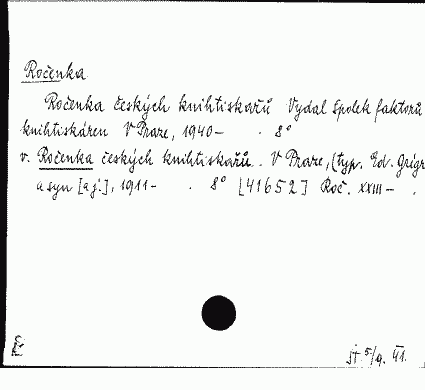 Ročenka
Ročenka českých knihtiskařů Vydal Spolek faktorů
knihtiskáren V Praze, 1940- . 8°
v. Ročenka českých knihtiskařů. V Praze, (typ. Ed. Grégr
a syn [aj.], 1911- . 8° [41652] Roč. XXIII- .